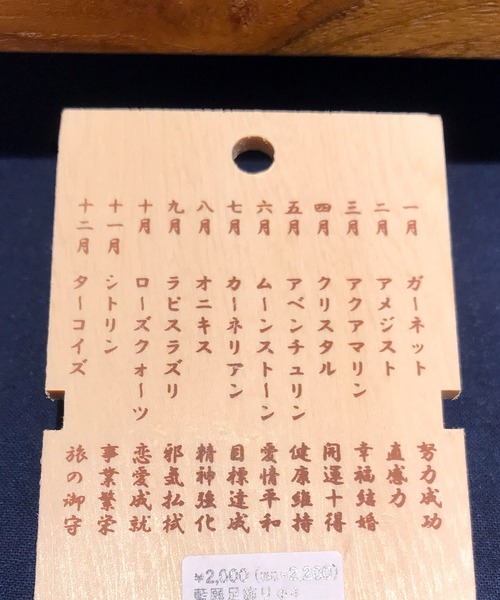 一月 ガーネット 努力成功
二月 アメジスト 直感力
三月 アクアマリン 幸福結婚
四月 クリスタル 開運十得
五月 アベンチュリン 健康維持
六月 ムーンストーン 愛情平和
七月 カーネリアン 目標達成
八月 オニキス 精神強化
九月 ラピスラズリ 邪気払拭
十月 ローズクォーツ 恋愛成就
十一月 シトリン 事業繁栄
十二月 ターコイズ 旅の御守
¥2,000